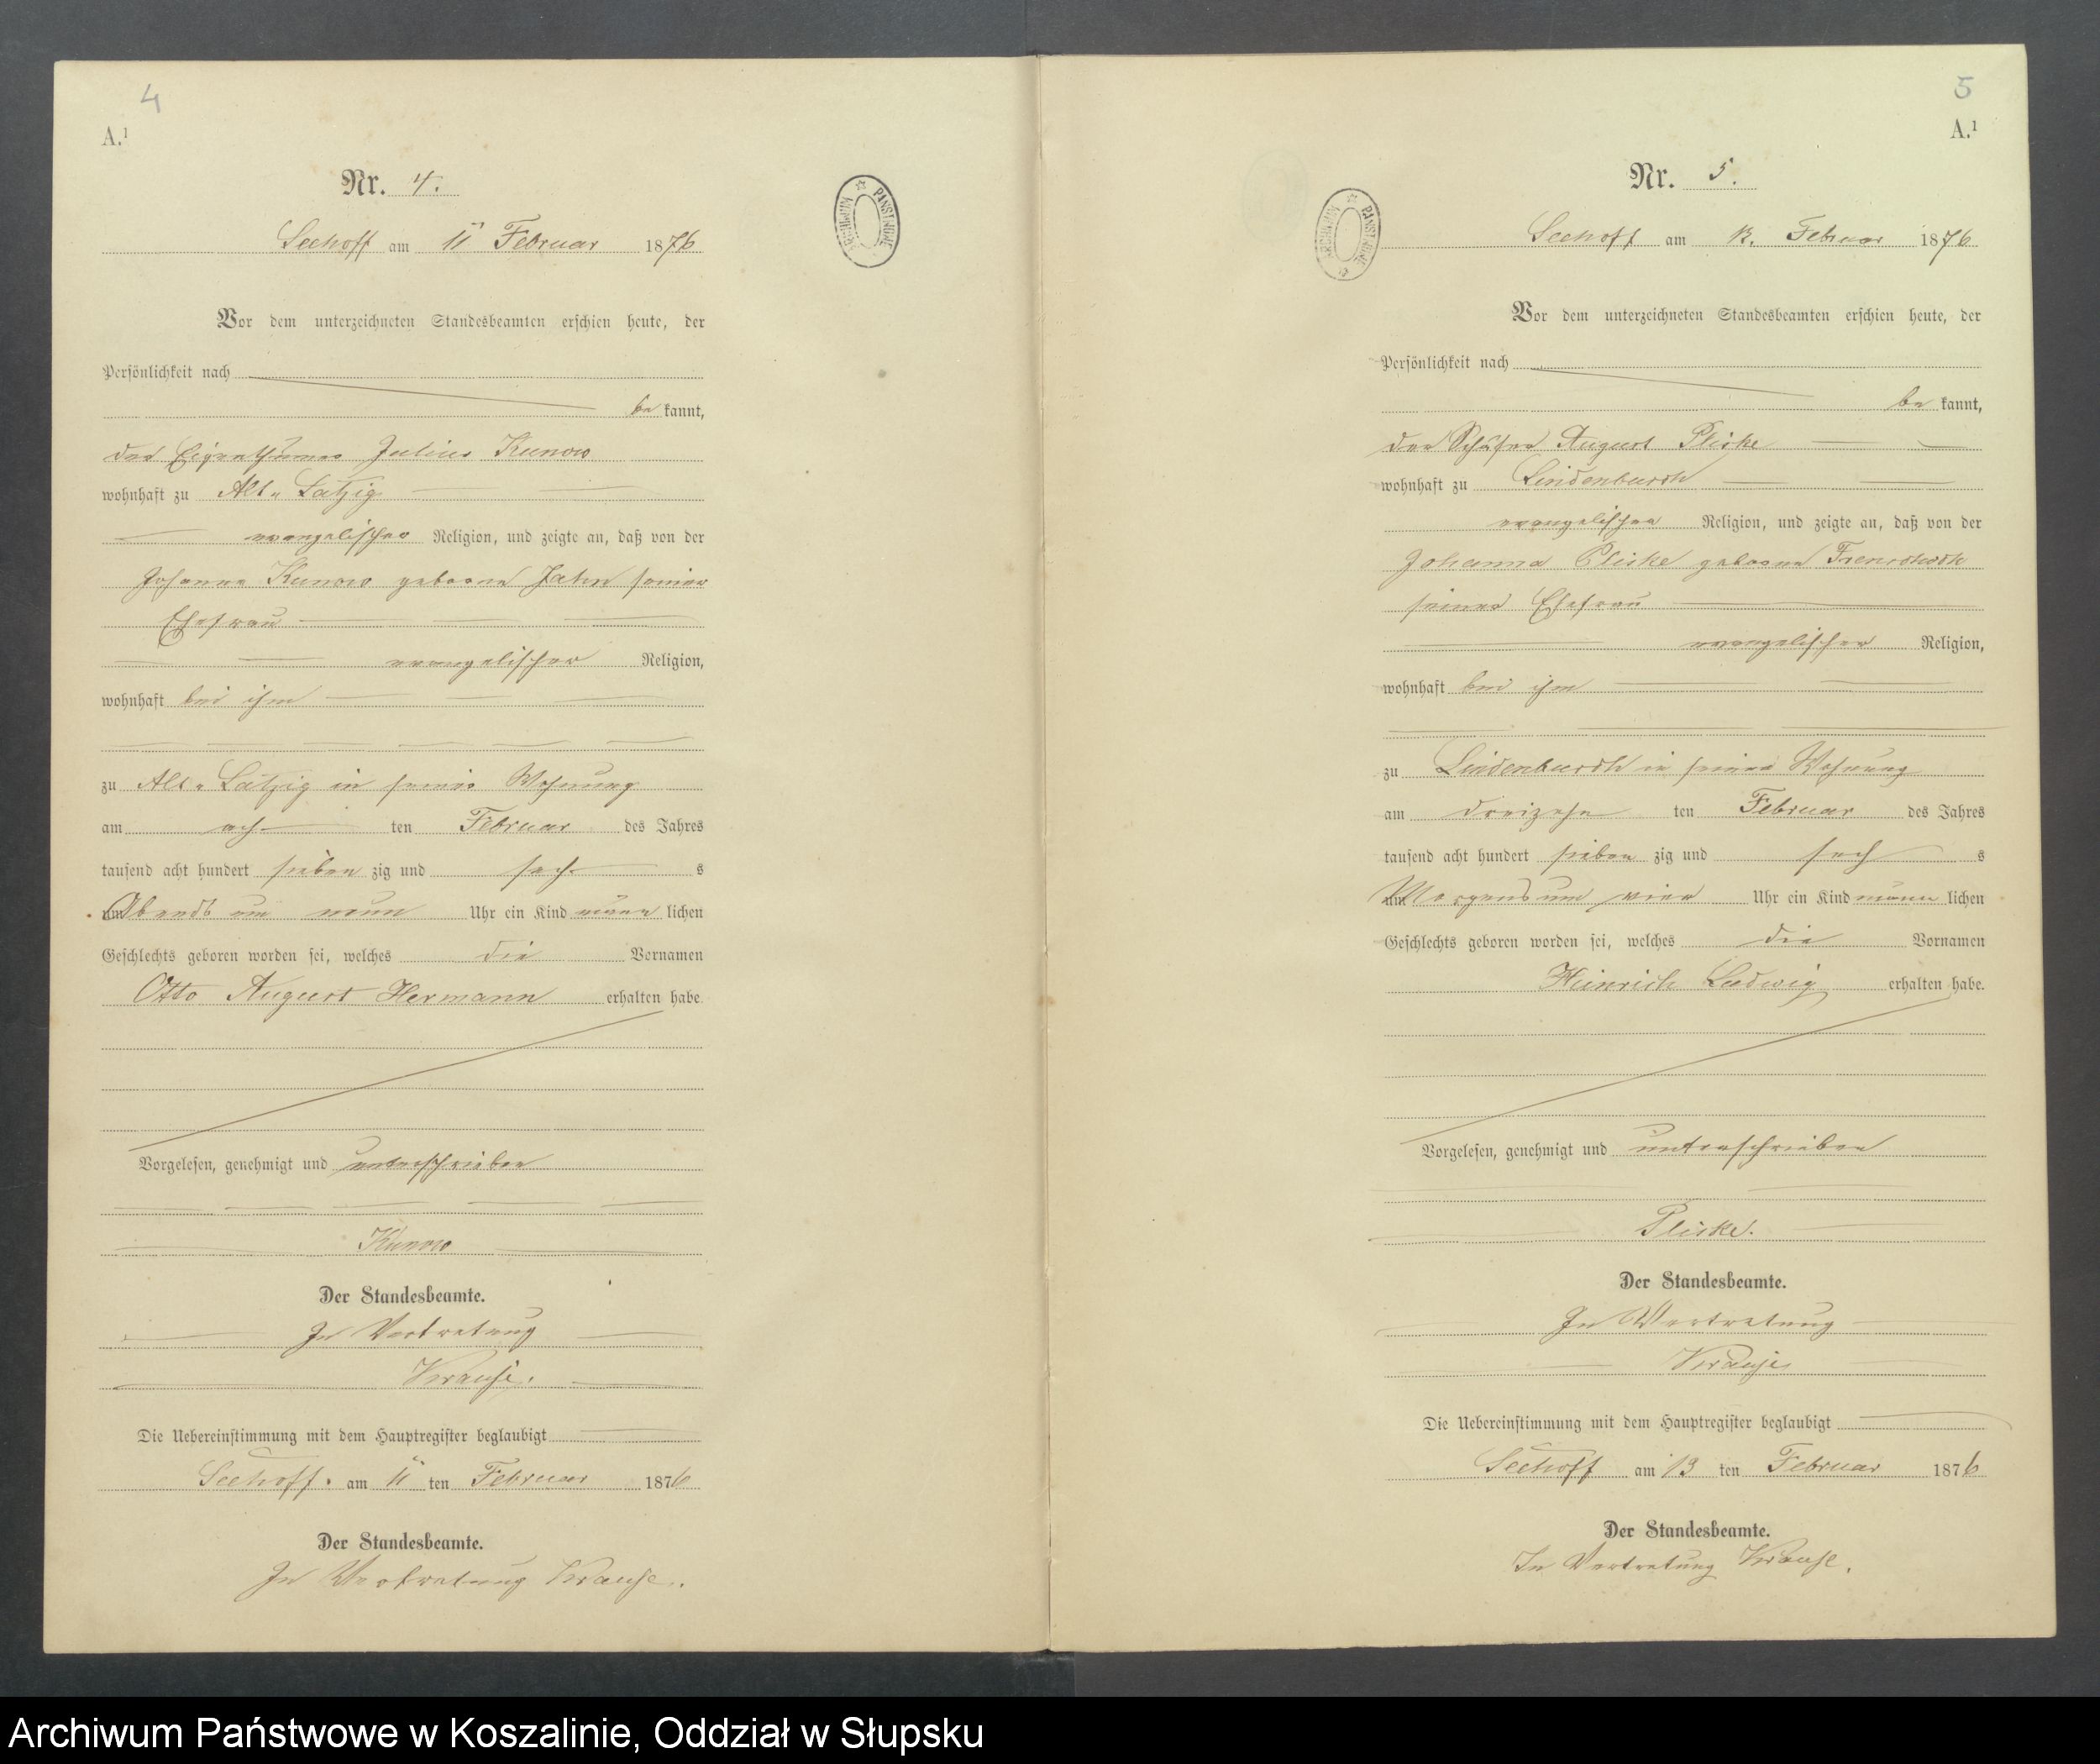 4
A.¹
Nr. 4.
Seehoff am 11 Februar 1876
Vor dem unterzeichneten Standesbeamten erschien heute, der
Persönlichkeit nach
be kannt,
der Eigenthümer Julius Kunow
wohnhaft zu Alt-Latzig
evangelischer Religion, und zeigte an, daß von der
Johanna Kunow geborne Jahn seiner
Ehefrau
evangelischer Religion,
wohnhaft bei ihm
zu Alt-Latzig in seiner Wohnung
am ach ten Februar des Jahres
tausend acht hundert sieben zig und sech s
um Abends um neun Uhr ein Kind männ lichen
Geschlechts geboren worden sei, welches die Vornamen
Otto August Hermann erhalten habe.
Vorgelesen, genehmigt und unterschrieben
Kunow
Der Standesbeamte.
In Vertretung
Krause.
Die Uebereinstimmung mit dem Hauptregister beglaubigt
Seehoff. am 11 ten Februar 1876
Der Standesbeamte.
In Vertretung Krause.
ARCHIWUM PAŃSTWOWE
5
A.¹
Nr. 5.
Seehoff am 13. Februar 1876
Vor dem unterzeichneten Standesbeamten erschien heute, der
Persönlichkeit nach
be kannt,
der Schäfer August Pliske
wohnhaft zu Lindenbusch
evangelischer Religion, und zeigte an, daß von der
Johanna Pliske geborne
seiner Ehefrau
evangelischer Religion,
wohnhaft bei ihm
zu Lindenbusch in seiner Wohnung
am dreizehn ten Februar des Jahres
tausend acht hundert sieben zig und sech s
um Morgens um vier Uhr ein Kind männ lichen
Geschlechts geboren worden sei, welches die Vornamen
Heinrich Ludwig erhalten habe.
Vorgelesen, genehmigt und unterschrieben
Pliske.
Der Standesbeamte.
In Vertretung
Krause
Die Uebereinstimmung mit dem Hauptregister beglaubigt
Seehoff am 13 ten Februar 1876
Der Standesbeamte.
In Vertretung Krause.
ARCHIWUM PAŃSTWOWE
Archiwum Państwowe w Koszalinie, Oddział w Słupsku